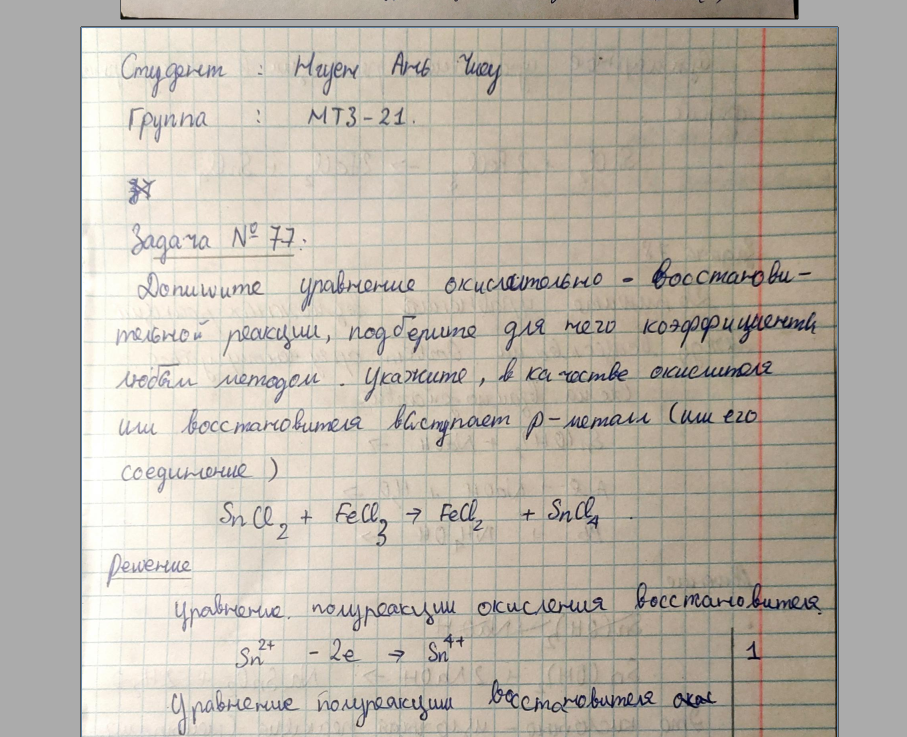 Студент : Нгуен Ань Чиеу
Группа : МТЗ-21.
Задача № 77.
Допишите уравнение окислительно - восстанови-
тельной реакции, подберите для него коэффициенты
любым методом. Укажите, в качестве окислителя
или восстановителя выступает p-металл (или его
соединение)
SnCl2 + FeCl3 → FeCl2 + SnCl4.
Решение
Уравнение полуреакции окисления восстановителя
Sn²⁺ - 2e → Sn⁴⁺ | 1
Уравнение полуреакции восстановителя